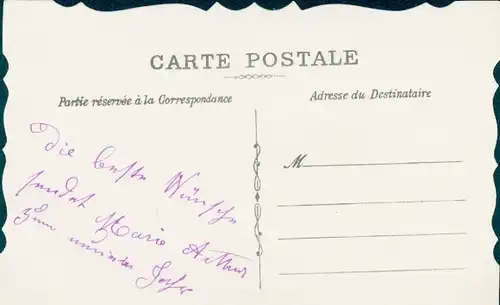 CARTE POSTALE
Partie réservée à la Correspondance
Adresse du Destinataire
M
Die beste Wünsche
sendet Marie Arthur
zum neuen Jahr